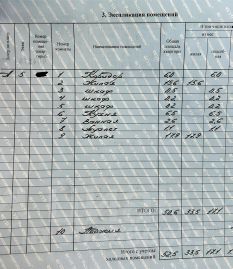 3. Экспликация помещений
Этаж
Номер комнаты
Наименование помещений
Общая площадь квартиры
А 5 1 Коридор 6.0 6.0
2 Жилая 15.6 15.6
3 шкаф 0.5 0.5
4 шкаф 0.2 0.2
5 шкаф 0.2 0.2
6 Кухня 6.5 6.5
7 Ванная 2.6 2.6
8 Туалет 1.1 1.1
9 Жилая 17.9 17.9
ИТОГО: 50.6 33.5 17.1
10
Итого с учетом
холодных помещений 33.5 17.1